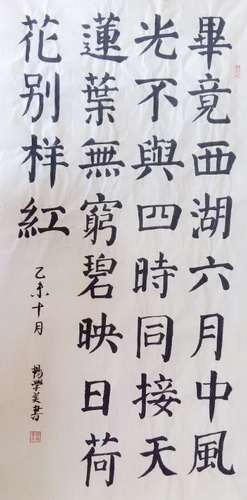 畢竟西湖六月中風
光不與四時同接天
蓮葉無窮碧映日荷
花别样紅
乙未十月
學美書